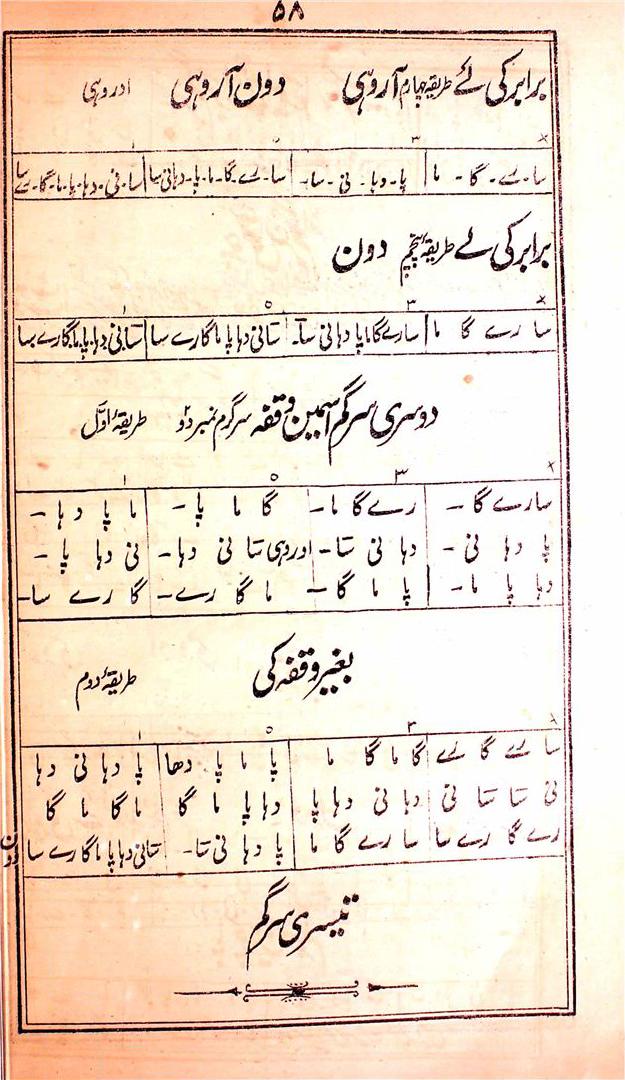 ۵۸
برابر کی لے طریقہ چہارم آروہی دون آروہی اور وہی
× ۳ ۰ ۱
سا۔ رے۔ گا۔ ما | پا۔ دہا۔ نی۔ سا۔ | سا۔ رے۔ گا۔ ما۔ پا۔ دہا نی سا | سا۔ نی۔ دہا۔ پا۔ ما۔ گا۔ رے سا
برابر کی لے طریقۂ پنجم دون
× ۳ ۰ ۱
سا رے گا ما | سارے گا ما پا دہا نی سا۔ | سا نی دہا پا ما گا رے سا | سا نی دہا پا ما گا رے سا
دوسری سرگم اسمین وقفہ سرگرم نمبر دو طریقۂ اوّل
× ۳ ۰ ۱
سارے گا ۔ | رے گا ما ۔ | گا ما پا ۔ | ما پا دہا ۔
پا دہا نی ۔ | دہا نی سا ۔ | اور وہی سا نی دہا ۔ | نی دہا پا ۔
دہا پا ما ۔ | پا ما گا ۔ | ما گا رے ۔ | گا رے سا ۔
بغیر وقفہ کی طریقۂ دوم
× ۳ ۰ ۱
سا رے گا رے | گا ما گا ما | پا ما پا دھا | پا دہا نی دہا
نی سا سا نی | دہا نی دہا پا | دہا پا ما گا | ما گا ما گا
رے گا رے سا | سا رے گا ما | پا دہا نی سا ۔ | سا نی دہا پا ما گا رے سا دون
تیسری سرگم